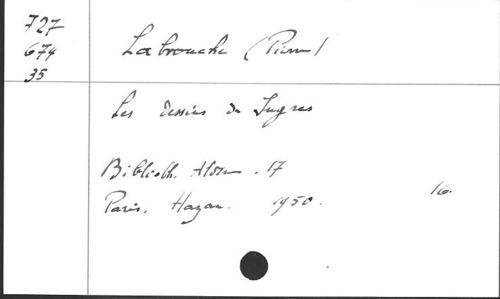 727
674
35
Labrouche (Pierre)
Les dessins de Ingres
Biblioth. Aldine. 17
Paris. Hazan. 1950.
16.